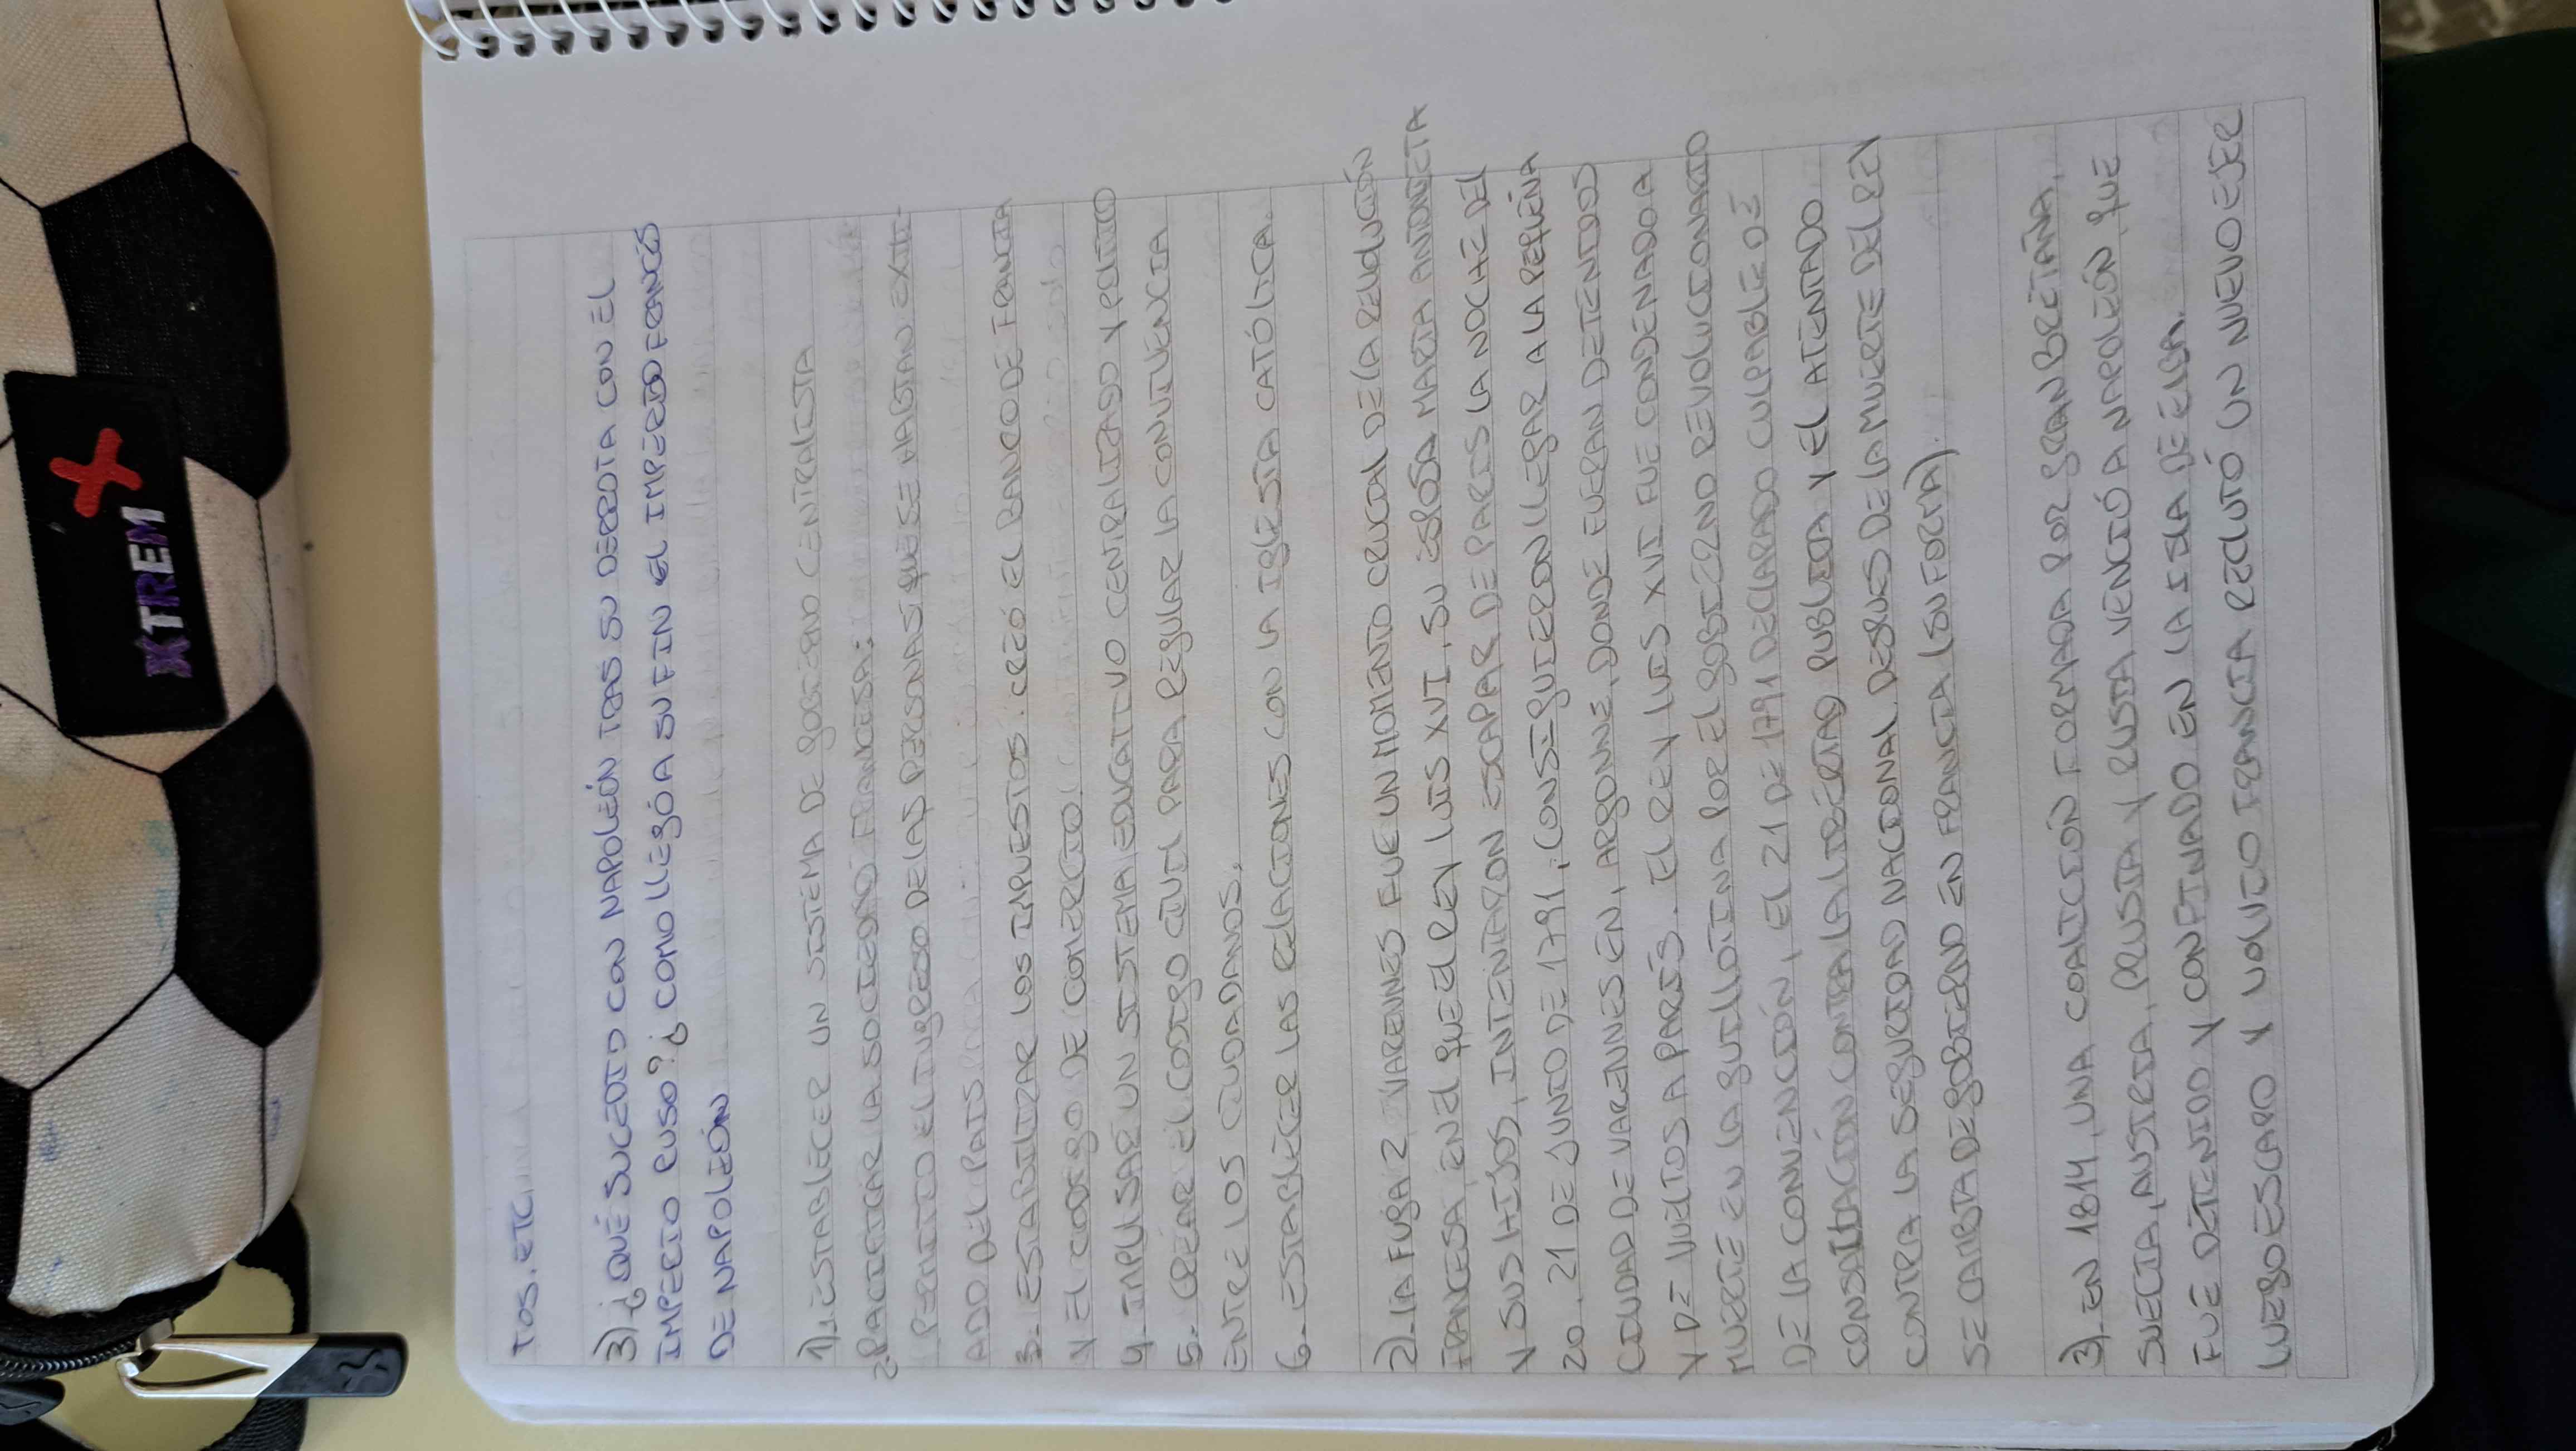 XTREM X
TOS. ETC.
3) ¿QUÉ SUCEDIO CON NAPOLEÓN TRAS SU DERROTA CON EL
IMPERIO RUSO? ¿COMO LLEGÓ A SU FIN EL IMPERIO FRANCÉS
DE NAPOLEÓN
1).-ESTABLECER UN SISTEMA DE GOBIERNO CENTRALISTA
2-PACIFICAR LA SOCIEDAD FRANCESA:
PERMITIO EL INGRESO DE LAS PERSONAS QUE SE HABIAN EXILI-
ADO DEL PAIS
3-ESTABILIZAR LOS IMPUESTOS: CREÓ EL BANCO DE FRANCIA
Y EL CODIGO DE COMERCIO.
4-IMPULSAR UN SISTEMA EDUCATIVO CENTRALIZADO Y POLITICO
5-CREAR EL CODIGO CIVIL PARA REGULAR LA CONVIVENCIA
ENTRE LOS CIUDADANOS.
6-ESTABLECER LAS RELACIONES CON LA IGLESIA CATÓLICA.
2)-LA FUGA 2 VARENNES FUE UN MOMENTO CRUCIAL DE LA REVOLUCIÓN
FRANCESA, EN EL QUE EL REY LUIS XVI, SU ESPOSA MARIA ANTONIETA
Y SUS HIJOS, INTENTARON ESCAPAR DE PARIS LA NOCHE DEL
20. 21 DE JUNIO DE 1791, CONSEGUIERON LLEGAR A LA PEQUEÑA
CIUDAD DE VARENNES EN, ARGONNE, DONDE FUERAN DETENIDOS
Y DE VUELTOS A PARÍS. EL REY LUIS XVI FUE CONDENADO A
MUERTE EN LA GUILLOTINA POR EL GOBIERNO REVOLUCIONARIO
DE LA CONVENCIÓN, EL 21 DE 1791 DECLARADO CULPABLE DE
CONTRA LA LIBERTAD PUBLICA Y EL ATENTADO
CONTRA LA SEGURIDAD NACIONAL. DESPUES DE LA MUERTE DEL REY
SE CAMBIA DE GOBIERNO EN FRANCIA (SU FORMA).
3)-EN 1814, UNA COALICIÓN FORMADA POR GRAN BRETAÑA,
SUECIA, AUSTRIA, PRUSIA Y RUSIA VENCIÓ A NAPOLEÓN QUE
FUE DETENIDO Y CONFINADO EN LA ISLA DE ELBA.
LUEGO ESCAPO Y VOLVIO FRANCIA RECLUTÓ UN NUEVO EJER